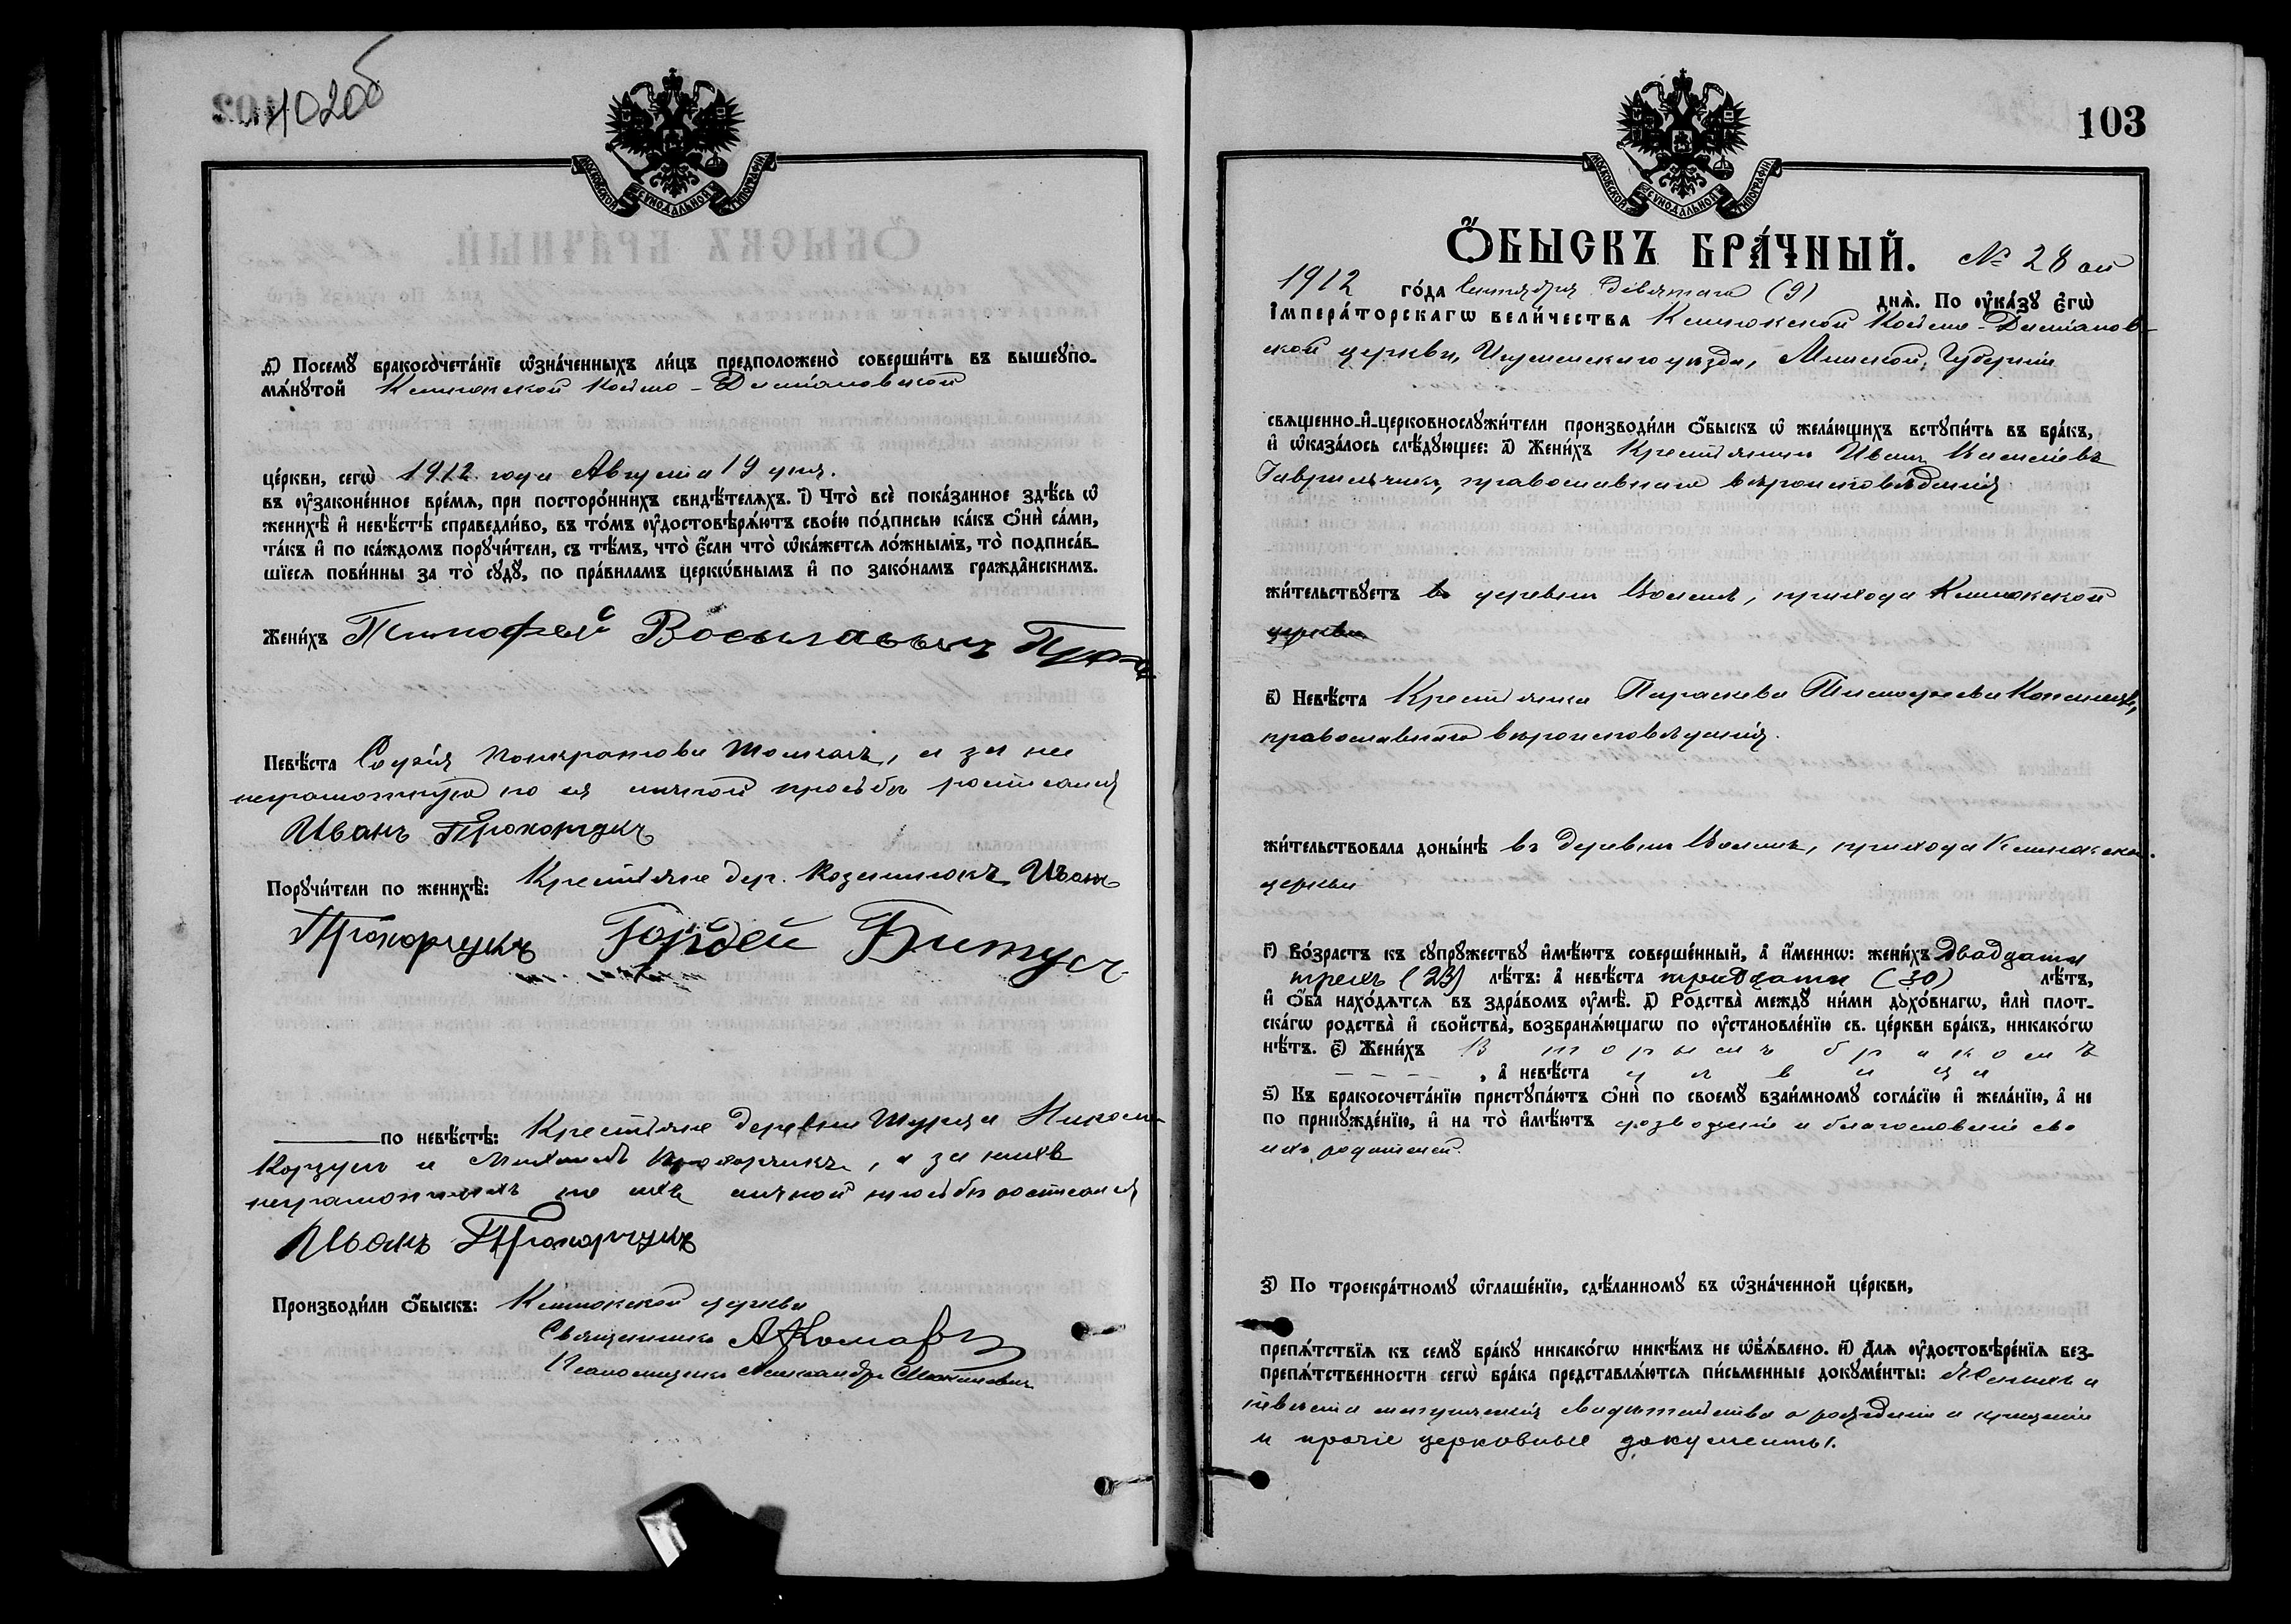 102об
МОСКОВСКОЙ СѴНОДАЛЬНОЙ ТИПОГРАФІИ
д҃) Посемꙋ бракосочета́нїе ѡ҆зна́ченныхъ ли́цъ предположено̀ соверши́ть въ вышеꙋпо-
мѧ́нꙋтой Клинокской Косьмо-Даміановской
це́ркви, сегѡ̀ 1912 года Августа 19 дня.
въ ᲂу҆законе́нное вре́мѧ, при посторо́ннихъ свидѣ́телѧхъ. і҃) Что̀ всѐ пока́занное здѣ́сь ѡ҆
женихѣ̀ и҆ невѣ́стѣ справедли́во, въ то́мъ ᲂу҆достовѣрѧ́ютъ свое́ю по́дписью ка́къ ѻ҆нѝ са́ми,
та́къ и҆ по ка́ждомъ порꙋчи́тели, съ тѣ́мъ, что̀ є҆́сли что̀ ѡ҆ка́жетсѧ ло́жнымъ, то̀ подписа́в-
шїесѧ пови́нны за то̀ сꙋдꙋ̀, по пра́виламъ церкѡ́внымъ и҆ по зако́намъ гражда̂нскимъ.
Жени́хъ Тимофей
Невѣ́ста Софія Понкратова, а за не
неграмотную по ея личной просьбѣ росписался
Иванъ Прокопчукъ
Порꙋчи́тели по женихѣ̀: Крестьяне дер. Иванъ
Прокопчукъ Гордей Битус
по невѣ́стѣ: Крестьяне деревни Николай
Корзун и Михаилъ, а за нихъ
неграмотныхъ по ихъ личной просьбѣ росписался
Иванъ Прокопчукъ
Производи́ли ѻ҆́быскъ: Клинокской церкви
Священникъ
Псаломщикъ Александръ
103
МОСКОВСКОЙ СѴНОДАЛЬНОЙ ТИПОГРАФІИ
Ѻ҆́БЫСКЪ БРА́ЧНЫЙ. № 28 ой
1912 го́да Сентября девятаго (9) днѧ̀. По ᲂу҆ка́зꙋ Є҆гѡ̀
І҆мпера́торскагѡ вели́чества Клинокской Косьмо-Даміанов-
ской церкви, Игуменскаго уѣзда, Минской Губерніи
свѧщенно-и҆-церковнослꙋжи́тели производи́ли ѻ҆́быскъ ѡ҆ жела́ющихъ встꙋпи́ть въ бра́къ,
и҆ ѡ҆каза́лось слѣ́дꙋющее: а҃) Жени́хъ Крестьянинъ Иванъ Васильевъ
Гаврильчикъ, православнаго вѣроисповѣданія
жи́тельствꙋетъ въ деревни, прихода Клинокской
церкви
в҃) Невѣ́ста Крестьянка Параскева Тимофеева,
православнаго вѣроисповѣданія.
жи́тельствовала доны́нѣ въ деревни, прихода Клинокской
церкви
г҃) Во́зрастъ къ сꙋпрꙋ́жествꙋ и҆мѣ́ютъ соверше́нный, а҆ и҆́меннѡ: жени́хъ двадцати
трехъ (23) лѣ́тъ: а҆ невѣ́ста тридцати (30) лѣ́тъ,
и҆ ѻ҆́ба нахо́дѧтсѧ въ здра́вомъ ᲂу҆мѣ̀. д҃) Родства̀ междꙋ̀ ни́ми дꙋхо́внагѡ, и҆лѝ плот-
ска́гѡ родства̀ и҆ свойства̀, возбранѧ́ющагѡ по ᲂу҆становле́нїю св. це́ркви бра́къ, никако́гѡ
нѣ́тъ. є҃) Жени́хъ Вторымъ бракомъ
, а҆ невѣ́ста дѣвица
ѕ҃) Къ бракосочета́нїю пристꙋпа́ютъ ѻ҆нѝ по своемꙋ̀ взаи́мномꙋ согла́сїю и҆ жела́нїю, а҆ не
по принꙋжде́нїю, и҆ на то̀ и҆мѣ́ютъ дозволеніе и благословеніе сво
ихъ родителей.
з҃) По троекра́тномꙋ ѡ҆глаше́нїю, сдѣ́ланномꙋ въ ѡ҆зна́ченной це́ркви,
препѧ́тствїѧ къ семꙋ̀ бра́кꙋ никако́гѡ никѣ́мъ не ѡ҆б̾ѧ́влено. и҃) Длѧ̀ ᲂу҆достовѣре́нїѧ без-
препѧ́тственности сегѡ̀ бра́ка представлѧ́ютсѧ пи́сьменные докꙋме́нты: Жениха и
невѣста метрическія свидѣтельства о рожденіи и крещеніи
и прочіе церковные документы.